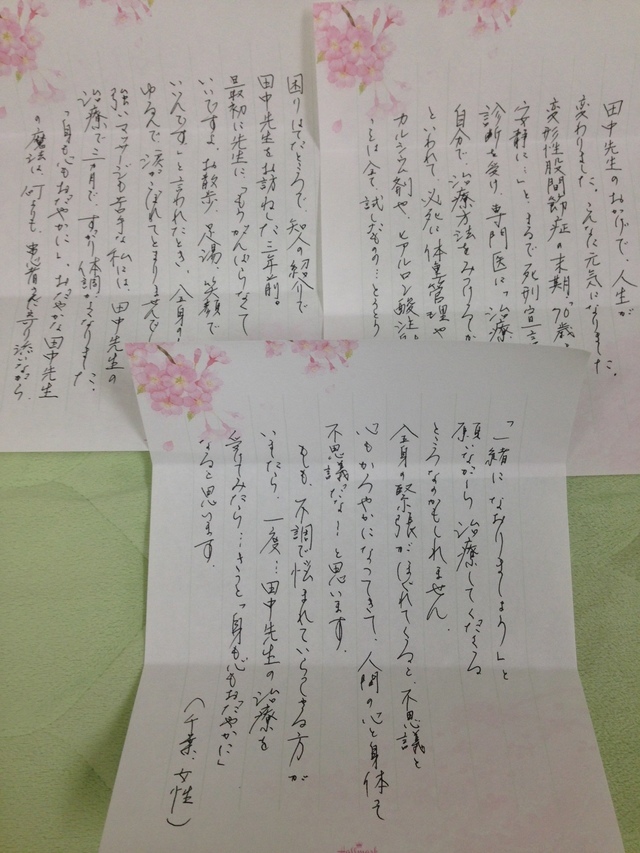 田中先生のおかげで、人生が
変わりました。こんな元気になりました。
変形性股関節症の末期「70歳
安静に…」と、まるで死刑宣言
診断を受け、専門医に「治療
自分で、治療方法をみつけろ
といわれて、必死に体重管理や
カルシウム剤や、ヒアルロン酸注
ことは全て試したもの…
困りはてたところで、知人の紹介で
田中先生をお訪ねした三年前。
最初に先生に「もうがんばらなくて
いいですよ。お散歩、足湯、笑顔で
いいんです。」と言われたとき、全身の
ゆるんで、涙がこぼれてとまりませんで
強いマッサージも苦手な私には、田中先生の
治療で三カ月で、すっかり体調がよくなりました。
「身も心もおだやかに」、おだやかな田中先生
の魔法は、何よりも、患者に寄り添いながら、
「一緒になおりましょう」と
願いながら治療してくださる
ところなのかもしれません。
全身の緊張がほぐれてくると、不思議と
心もかろやかになってきて、人間の心と身体って
不思議だな…と思います。
もし、不調で悩まれていらっしゃる方が
いましたら、一度…田中先生の治療を
受けてみたら…きっと「身も心もおだやかに」
なると思います。
(千葉、女性)
Hallmark